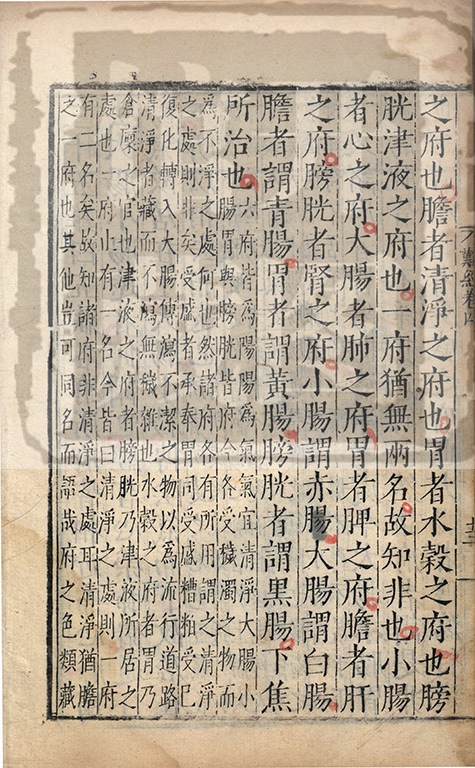 之府也膽者清淨之府也胃者水穀之府也膀
胱津液之府也一府猶無兩名故知非也小腸
者心之府大腸者肺之府胃者脾之府膽者肝
之府膀胱者腎之府小腸謂赤腸大腸謂白腸
膽者謂青腸胃者謂黃腸膀胱者謂黑腸下焦
所治也
六府皆為陽陽為氣氣宜清淨大腸小
腸胃與膀胱皆府今各受穢濁之物而
為不淨之處何也然諸府各有所用謂之清淨
之處則非矣受盛者承奉胃司受盛糟粕受巳
復化轉入大腸傳瀉不潔之物以為流行道路
清淨者藏而不瀉無穢雜也水穀之府者胃乃
倉廩之官也津液之府者膀胱乃津液所居之
處也一府止有一名今皆曰清淨之處則一府
有二名矣故知諸府非清淨之處耳清淨猶膽
之一府也其他豈可同名而語哉府之色類藏